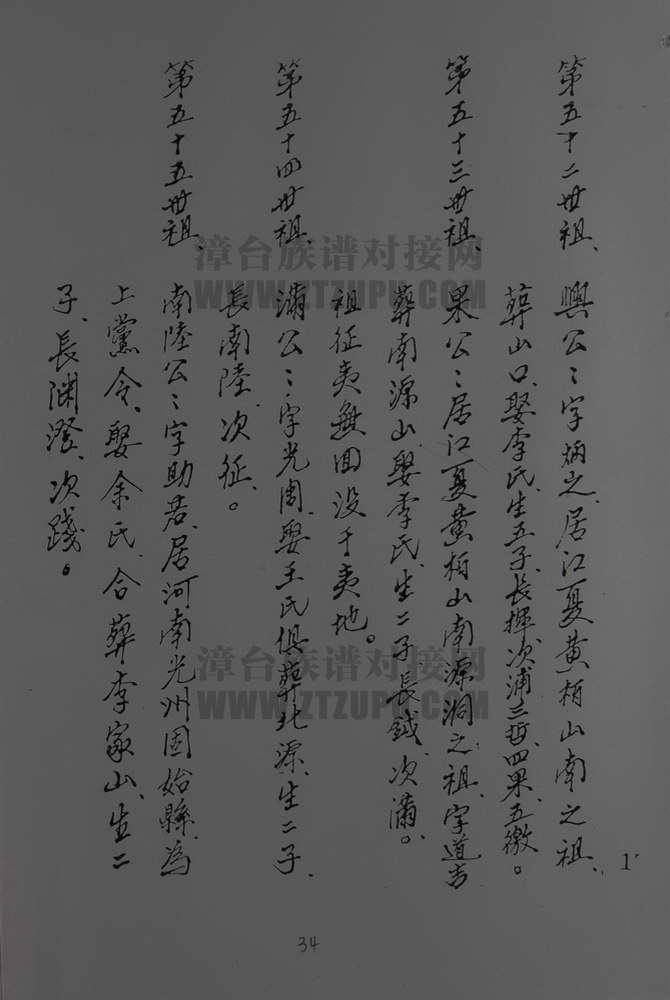 第五十二世祖、
興公〻字炳之、居江夏黄柏山南之祖、
葬山口、娶李氏、生五子、長揮、次浦、三哲、四果、五徽。
第五十三世祖、
果公〻居江夏黄柏山南源洞之祖、字道吉
葬南源山、娶李氏、生二子、長鉞、次滿。
祖征夷無回没于夷地。
第五十四世祖、
滿公〻字光周、娶王氏俱葬北源、生二子、
長南陸、次征、。
第五十五世祖、
南陸公〻字助君、居河南光州固始縣、為
上黨令、娶余氏、合葬李家山、生二
子、長渊澄、次踐。
1
34
漳台族谱对接网
WWW.ZTZUPU.COM
漳台族谱对接网
WWW.ZTZUPU.COM